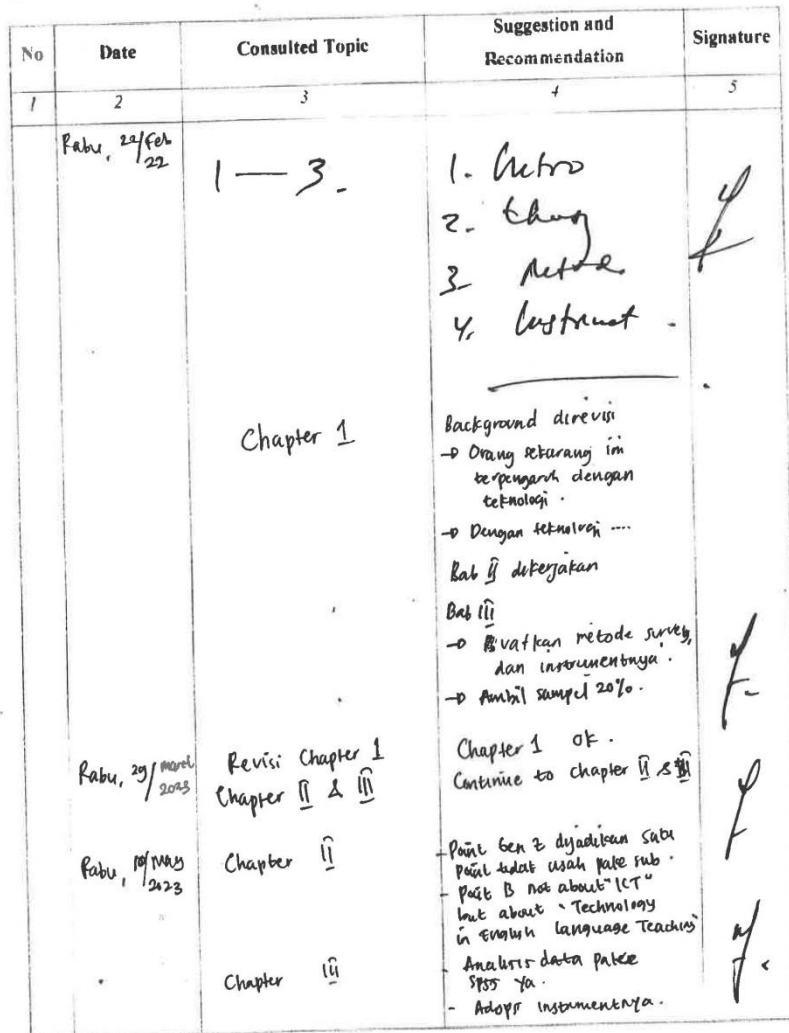 No Date Consulted Topic Suggestion and Recommendation Signature
1 2 3 4 5
Rabu, Feb 22
1 — 3.
1. Intro
2.
3. Metode
4. Instrument.
Chapter 1
Background direvisi
→ Orang sekarang ini
terpengaruh dengan
teknologi.
→ Dengan teknologi ....
Bab II dikerjakan
Bab III
→ kuatkan metode survey,
dan instrumentnya.
→ Ambil sampel 20%.
Rabu, 29/maret 2023
Revisi Chapter 1
Chapter II & III
Chapter 1 OK.
Continue to chapter II & III
Rabu, 10/May 2023
Chapter II
- Point Gen Z dijadikan satu
point tidak usah pake sub.
- Point B not about "ICT"
but about "Technology
in English Language Teaching"
Chapter III
- Analisis data pakee
SPSS ya.
- Adopsi instrumentnya.